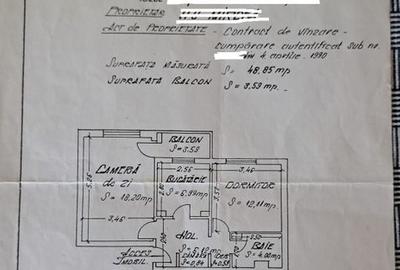 PROPRIETAR
ACT DE PROPRIETATE - Contract de vînzare -
cumpărare autentificat sub nr.
din 4 aprilie 1990
SUPRAFAȚA MĂSURATĂ S= 48,85 mp
SUPRAFAȚA BALCON S= 3.59 mp.
BALCON
S=3.59
CAMERĂ
de ZI
S= 18,20mp.
5,26
3,46
2,56
BUCĂTĂRIE
S= 6,99mp
3,46
DORMITOR
S= 12,11mp.
3,57
HOL
BAIE
S=4,00mp
ACCES
IMOBIL
S=0,84